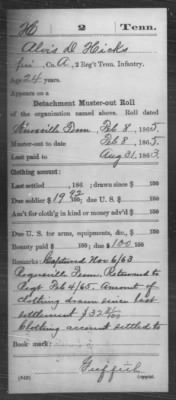 H 2 Tenn.
Alvis D. Hicks
Co. A, 2 Reg't Tenn. Infantry.
Age 24 years.
Appears on a
Detachment Muster-out Roll
of the organization named above. Roll dated
Knoxville Tenn, Feb 8, 1865.
Muster-out to date Feb 8, 1865.
Last paid to Aug 31, 1863.
Clothing account:
Last settled , 186 ; drawn since $ 100
Due soldier $ 19 92/100; due U. S. $ 100
Am't for cloth'g in kind or money adv'd $ 100
Due U. S. for arms, equipments, &c., $ 100
Bounty paid $ 100; due $ 100 100
Remarks: Captured Nov 6/63
Rogersville Tenn. Returned to
Regt Feb 4/65. Amount of
clothing drawn since last
settlement $32
Clothing account settled to
Book mark:
Griffith
Copyist.